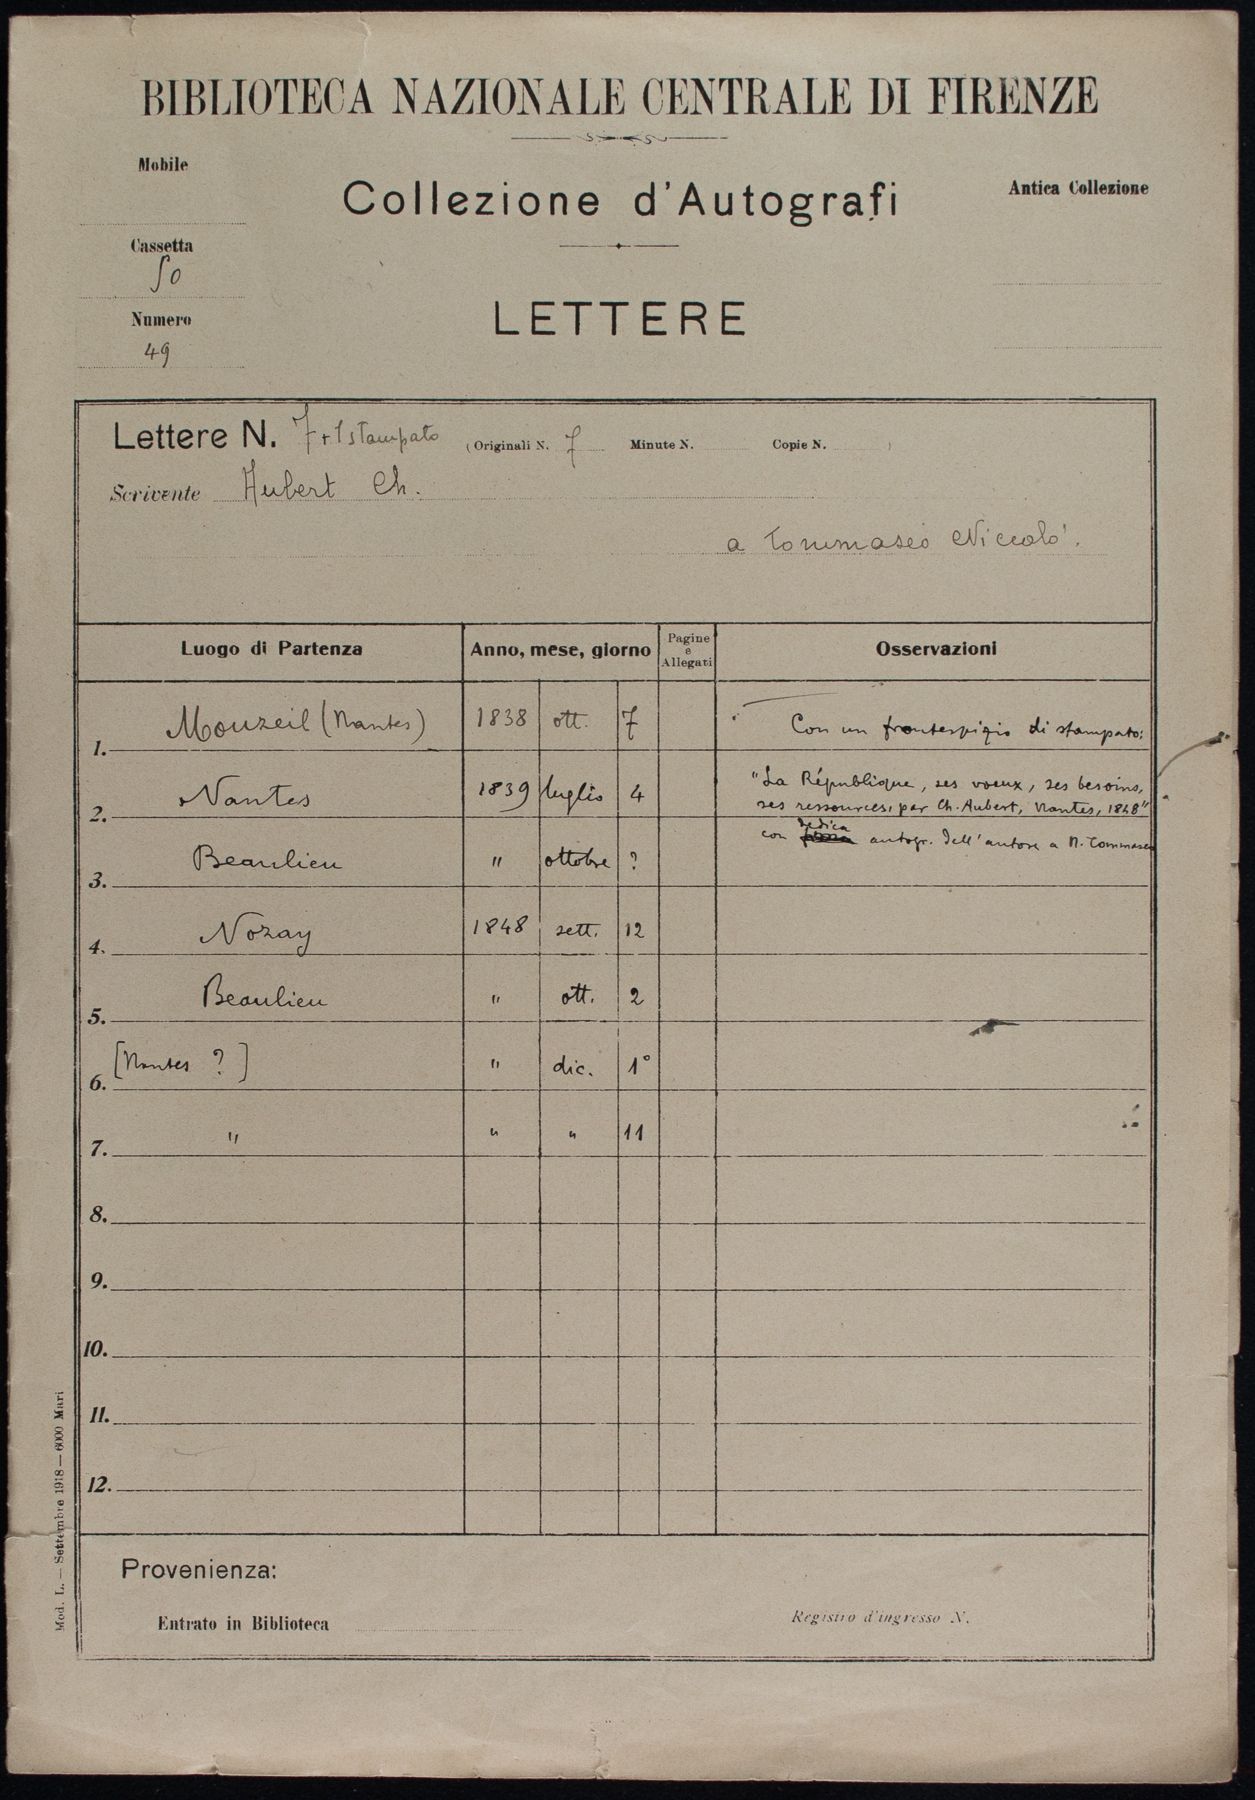 BIBLIOTECA NAZIONALE CENTRALE DI FIRENZE
Mobile
Collezione d'Autografi
Antica Collezione
Cassetta
50
LETTERE
Numero
49
Lettere N. 7+1 stampato (Originali N. 7 Minute N. Copie N. )
Scrivente Hubert Ch.
a Tommaseo Niccolò.
Luogo di Partenza Anno, mese, giorno Pagine e Allegati Osservazioni
1. Mouzeil (Nantes) 1838 ott. 7 Con un frontespizio di stampato:
2. Nantes 1839 luglio 4 "La République, ses voeux, ses besoins,
ses ressources, par Ch. Hubert, Nantes, 1848"
con dedica autogr. dell'autore a N. Tommaseo
3. Beaulieu " ottobre ?
4. Nozay 1848 sett. 12
5. Beaulieu " ott. 2
6. [Nantes ?] " dic. 1°
7. " " " 11
8.
9.
10.
11.
12.
Provenienza:
Entrato in Biblioteca
Registro d'ingresso N.
Mod. L. — Settembre 1918 — 6000 Mari